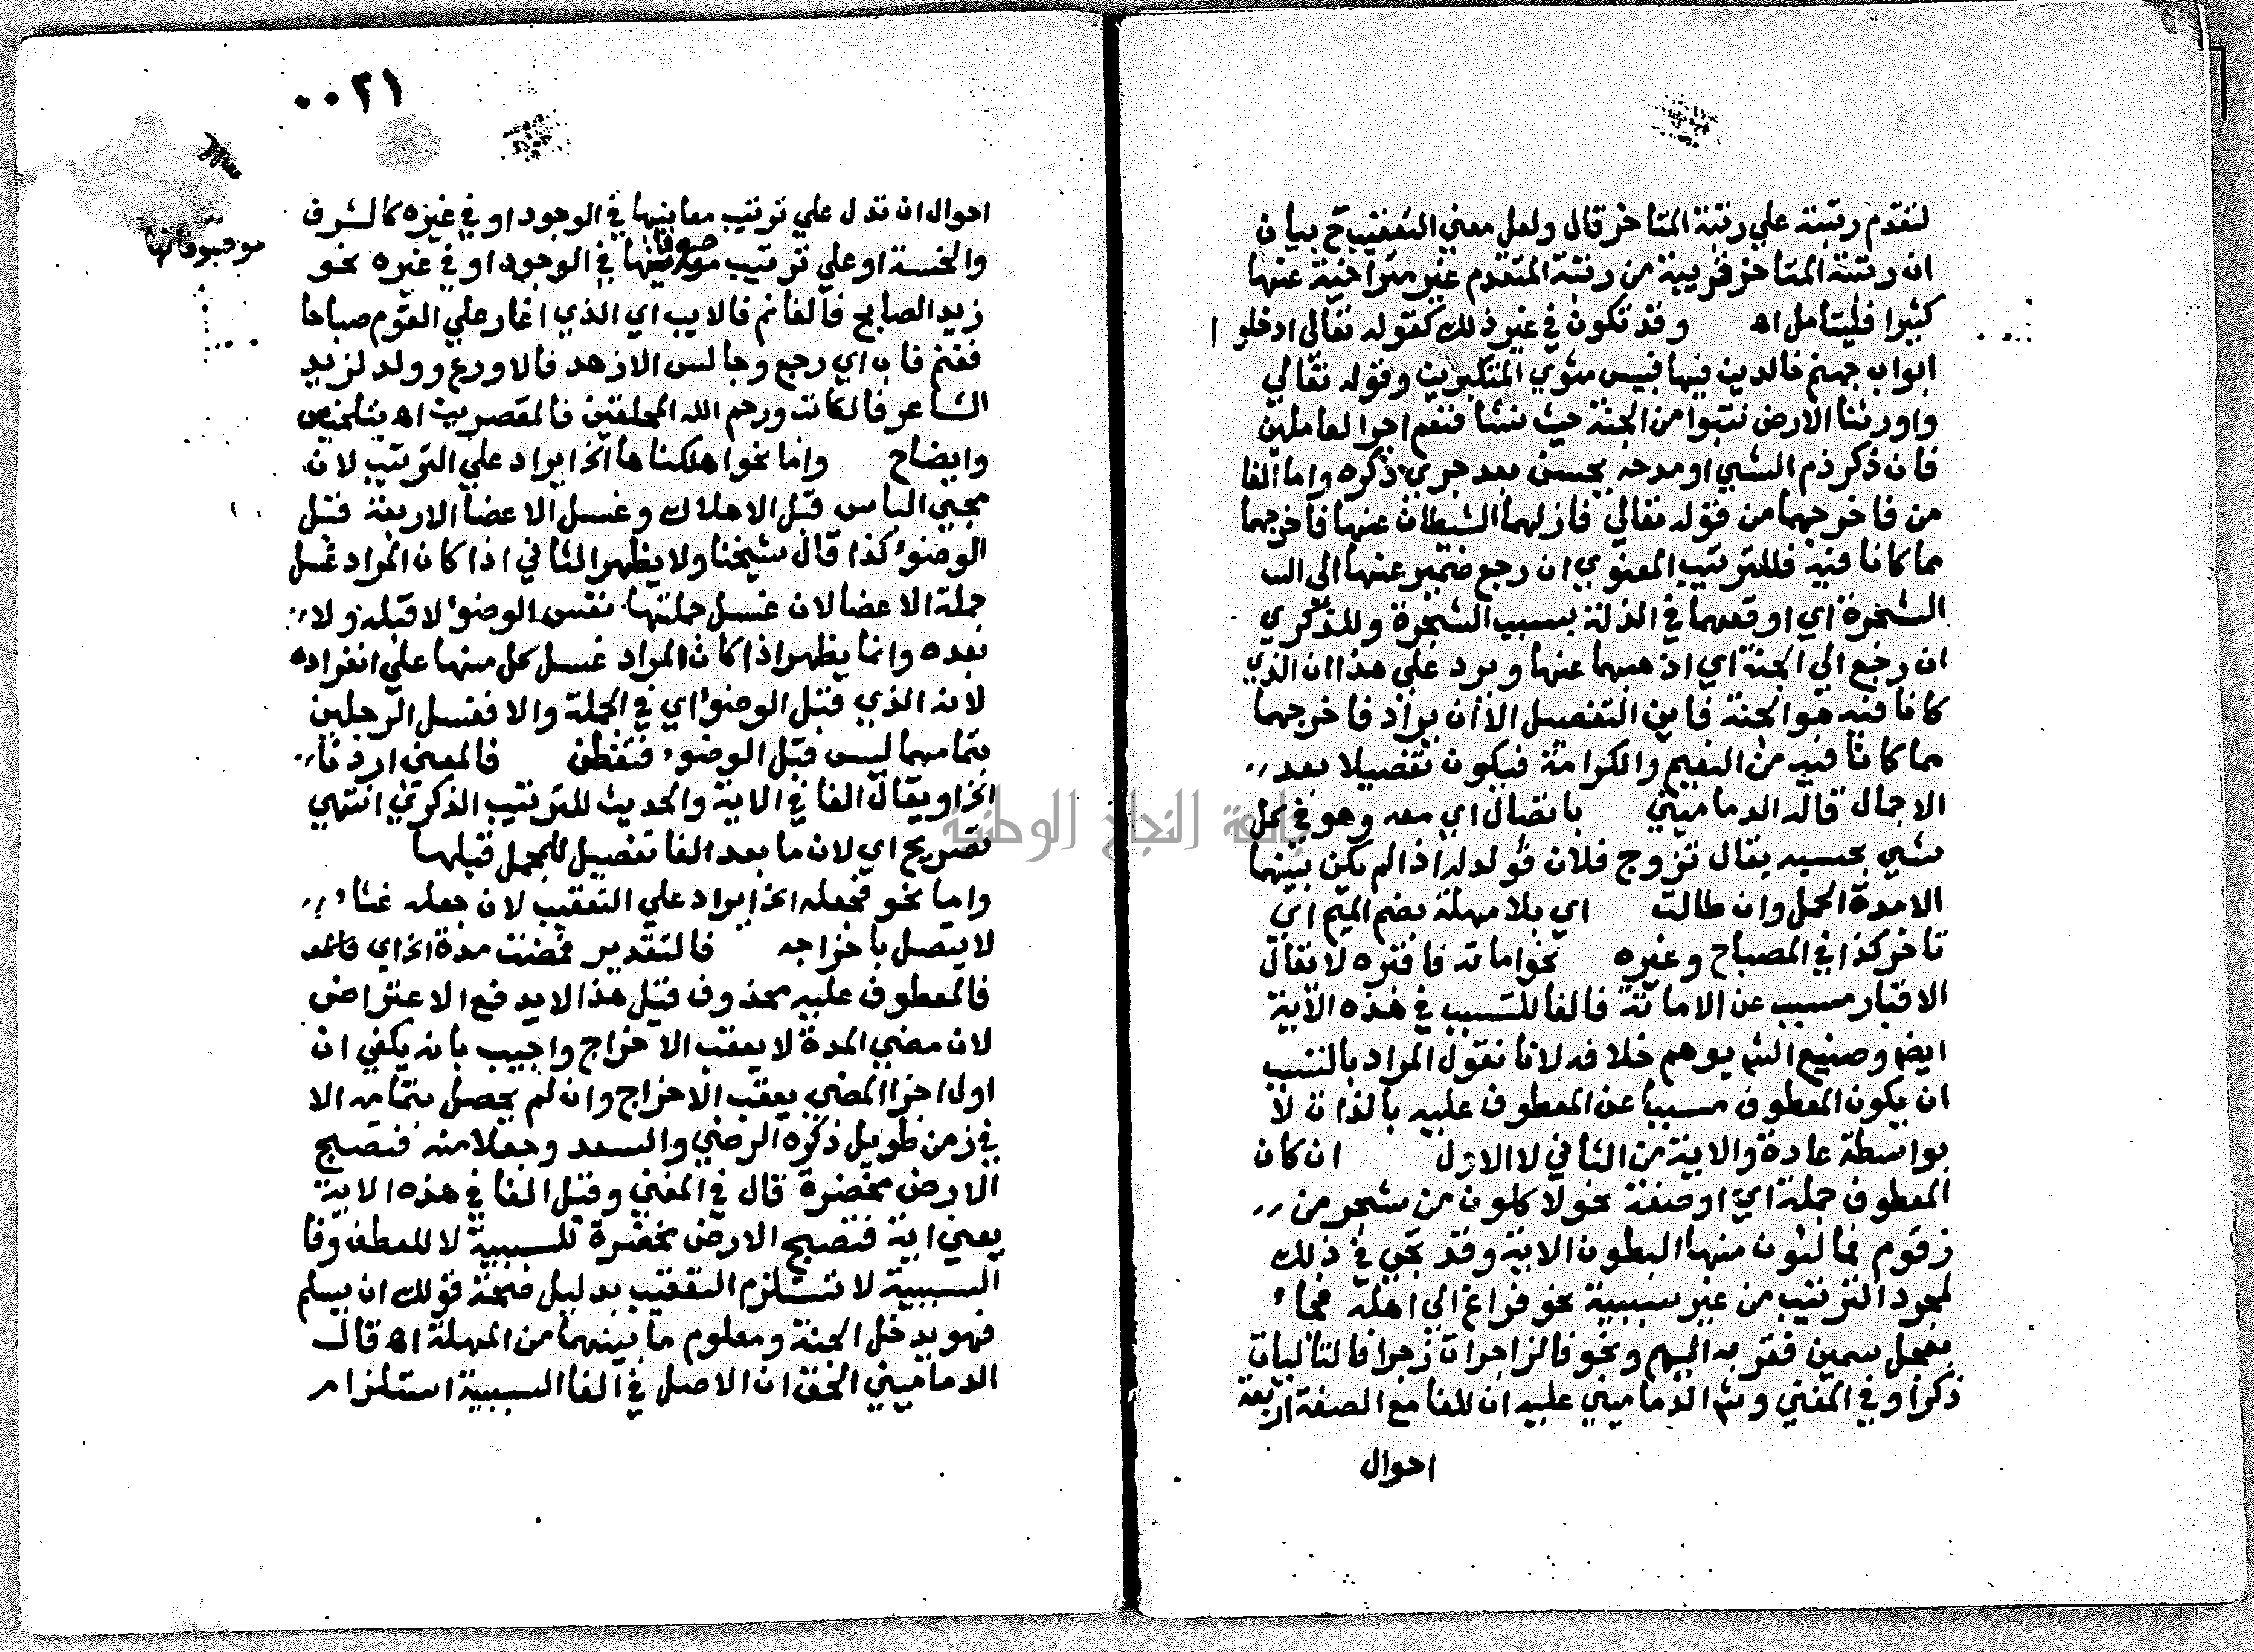 لتقدم رتبته علي رتبة المتاخر قال ولعل معني التعقيب ح بيان
ان رتبة المتاخر قريبة من رتبة المتقدم غير متراخية عنها
كثيرا فليتامل اه وقد تكون في غير ذلك كقوله تعالى ادخلوا
ابواب جهنم خالدين فيها فبيس مثوي المتكبرين وقوله تعالي
واورثنا الارض نتبوا من الجنة حيث نشا فنعم اجر العاملين
فان ذكر ذم الشي او مدحه يحسن بعد جري ذكره واما الفا
من فاخرجهما من قوله تعالي فازلهما الشيطان عنها فاخرجهما
مما كانا فيه فللترتيب المعنوي ان رجع ضمير عنها الى الس
الشجرة اي اوقعهما في الذلة بسبب الشجرة وللذكري
ان رجع الي الجنة اي اذهبهما عنها ويرد علي هذا ان الذي
كانا فيه هو الجنة فاين التفصيل الا ان يراد فاخرجهما
مما كانا فيه من النعيم والكرامة فيكون تفصيلا بعد
الاجمال قاله الدماميني باتصال اي معه وهو في كل
شي بحسبه يقال تزوج فلان فولد له اذا لم يكن بينهما
الا مدة الحمل وان طالت اي بلا مهلة بضم الميم اي
تاخر كذا في المصباح وغيره نحو اماته فاقبره لا يقال
الاقبار مسبب عن الاماتة فالفا للتسبب في هذه الآية
ايضا وصنيع الشم يوهم خلافه لانا نقول المراد بالتسبب
ان يكون المعطوف مسببا عن المعطوف عليه بالذات لا
بواسطة عادة والاية من الثاني لا الاول ان كان
المعطوف جملة اي او صفة نحو لاكلون من شجر من
زقوم فمالئون منها البطون الاية وقد تجي في ذلك
لمجرد الترتيب من غير سببية نحو فراغ الي اهله فجاء
بعجل سمين فقربه اليهم ونحو فالزاجرات زجرا فالتاليات
ذكرا وفي المغني وشم الدماميني عليه ان للفا مع الصفة اربعة
احوال
٠٠٢١
احوال ان تدل علي ترتيب معانيها في الوجود او في غيره كالشرف
والخسة او علي ترتيب موصوفاتها في الوجود او في غيره نحو
موصوفاتها
زيد الصابح فالغانم فالايب اي الذي اغار علي القوم صباحا
فغنم فاب اي رجع وجالس الازهد فالاورع وولد لزيد
الشاعر فالكاتب ورحم الله المحلقين فالمقصرين اه بتلخيص
وايضاح واما نحو اهلكناها الخ ايراد علي الترتيب لان
مجي الباس قبل الاهلاك وغسل الاعضا الاربعة قبل
الوضوء كذا قال شيخنا ولا يظهر الثاني اذا كان المراد غسل
جملة الاعضا لان غسل جملتها نفس الوضوء لا قبله ولا
بعده وانما يظهر اذا كان المراد غسل كل منها علي انفراده
لانه الذي قبل الوضوء اي في الجملة والا فغسل الرجلين
بتمامهما ليس قبل الوضوء فتفطن فالمعني اردنا
الخ او يقال الفا في الاية والحديث للترتيب الذكري انتهي
تصريح اي لان ما بعد الفا تفصيل للمجمل قبلها
واما نحو فجعله الخ ايراد علي التعقيب لان جعله غثاء
لا يتصل باخراجه فالتقدير فمضت مدة الخ اي
فالمعطوف عليه محذوف قيل هذا لا يدفع الاعتراض
لان مضي المدة لا يعقب الاخراج واجيب بانه يكفي ان
اول اجزا المضي يعقب الاخراج وان لم يحصل بتمامه الا
في زمن طويل ذكره الرضي والسعد وجعلا منه فتصبح
الارض مخضرة قال في المغني وقيل الفا في هذه الاية
يعني اية فتصبح الارض مخضرة للسببية لا للعطف وفا
السببية لا تستلزم التعقيب بدليل صحة قولك ان يسلم
فهو يدخل الجنة ومعلوم ما بينهما من المهلة اه قال
الدماميني الحق ان الاصل في الفا السببية استلزام
جامعة النجاح الوطنية